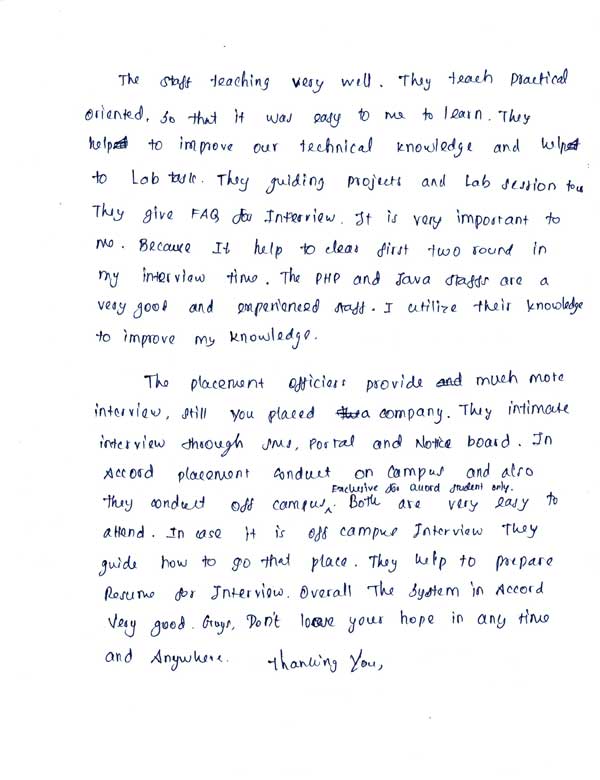 The staff teaching very well. They teach practical
oriented, so that it was easy to me to learn. They
help to improve our technical knowledge and help
to Lab task. They guiding projects and Lab session too
They give FAQ for Interview. It is very important to
me. Because It help to clear first two round in
my interview time. The PHP and Java staffs are a
very good and experienced staff. I utilize their knowledge
to improve my knowledge.
The placement officiers provide and much more
interview, still you placed a company. They intimate
interview through sms, Portal and Notice board. In
Accord placement conduct on campus and also
Exclusive for accord student only.
they conduct off campus. Both are very easy to
attend. In case it is off campus Interview They
guide how to go that place. They help to prepare
Resume for Interview. Overall The System in Accord
Very good. Guys, Don't loose your hope in any time
and Anywhere. Thanking You,